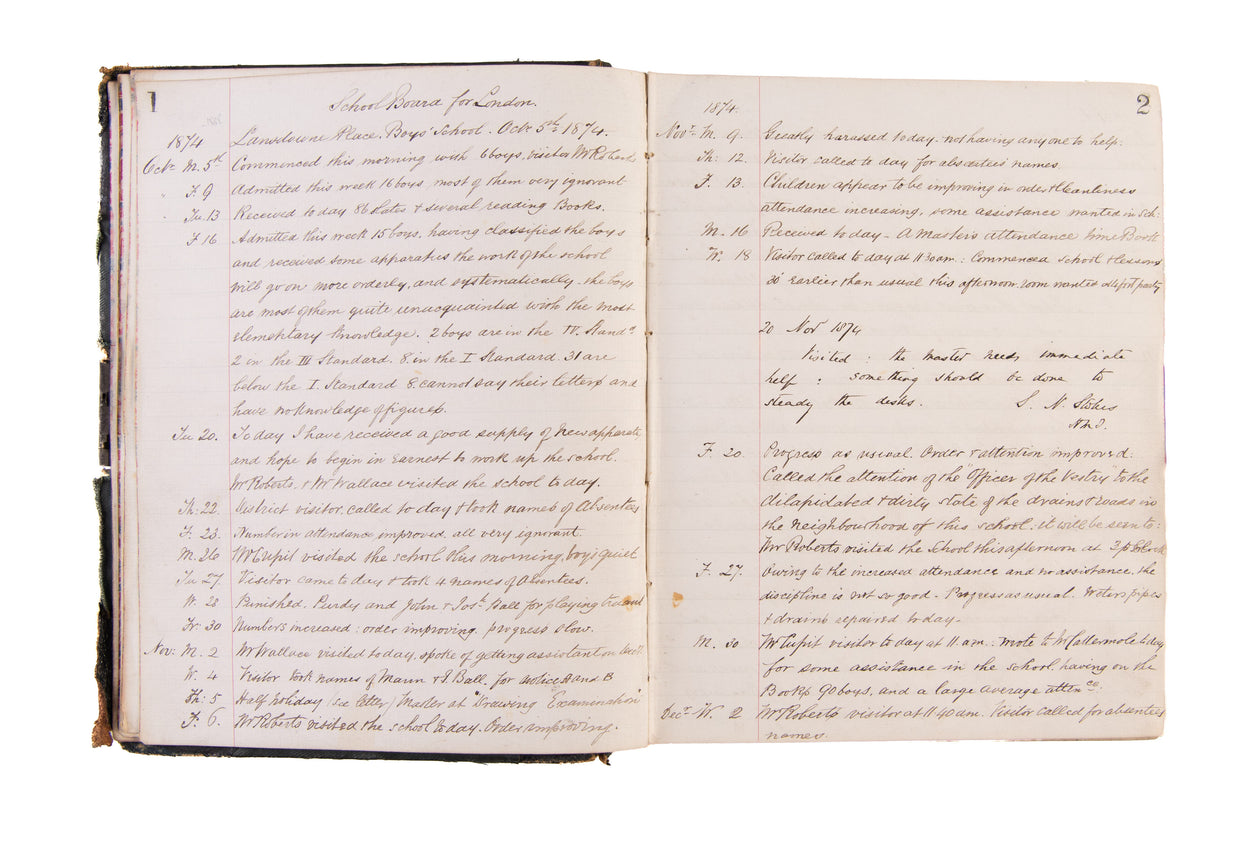 1
School Board for London.
1874 Lansdowne Place. Boys' School. Octr 5th 1874.
Octr M. 5th Commenced this morning with 6 boys, visitor Mr Roberts
" F. 9 Admitted this week 16 boys, most of them very ignorant
" Tu. 13 Received to day 86 slates & several reading Books.
F 16 Admitted this week 15 boys, having classified the boys
and received some apparatus the work of the school
will go on more orderly, and systematically - the boys
are most of them quite unacquainted with the most
elementary knowledge. 2 boys are in the IV. Standd
2 in the III Standard. 8 in the I Standard. 31 are
below the I. Standard & cannot say their letters and
have no knowledge of figures.
Tu 20. To day I have received a good supply of new apparatus
and hope to begin in earnest to work up the school.
Mr Roberts. & Mr Wallace visited the school to day.
Th: 22. District visitor called to day & took names of Absentees
F. 23. Number in attendance improved. all very ignorant.
M. 26 Mr Cupit visited the school this morning, boys quiet
Tu 27. Visitor came to day & took 4 names of Absentees.
W. 28 Punished. Purdy and John & Josh Ball for playing truant
Fr: 30 Numbers increased: order improving. progress slow.
Nov: M. 2 Mr Wallace visited to day, spoke of getting assistant on
W. 4 Visitor took names of Mann & J. Ball. for notice A and B
Th: 5 Half holiday see letter, Master at "Drawing Examination"
F: 6. Mr Roberts visited the school to day. Order improving.
2
1874.
Novr M. 9. Greatly harassed to day. not having anyone to help:
Th: 12. Visitor called to day for absentees names.
F. 13. Children appear to be improving in order & Cleanliness
attendance increasing, some assistance wanted in Sch:
M. 16 Received to day - A Masters attendance time Book
W. 18 Visitor called to day at 11 30 am.: Commenced School & lessons
30' earlier than usual this afternoon. room wanted
20 Nov 1874
Visited: the master needs immediate
help: something should be done to
steady the desks. S. N. Stokes
H.M.I.
F. 20. Progress as usual. Order & attention improved.
Called the attention of the "Officer of the Vestry" to the
dilapidated & dirty state of the drains & roads in
the neighbourhood of this school. it will be seen to:
Mr Roberts visited the School this afternoon at 3
F. 27. Owing to the increased attendance and no assistance. the
discipline is not so good - Progress as usual. Water pipes
& drains repaired to day -
M. 30 Mr Cupit visitor to day at 11 a.m.: wrote to Mr Cattermole to day
for some assistance in the school having on the
Books 90 boys, and a large average attence.
Decr W. 2 Mr Roberts visitor at 11 40 am. Visitor called for absentees
names.